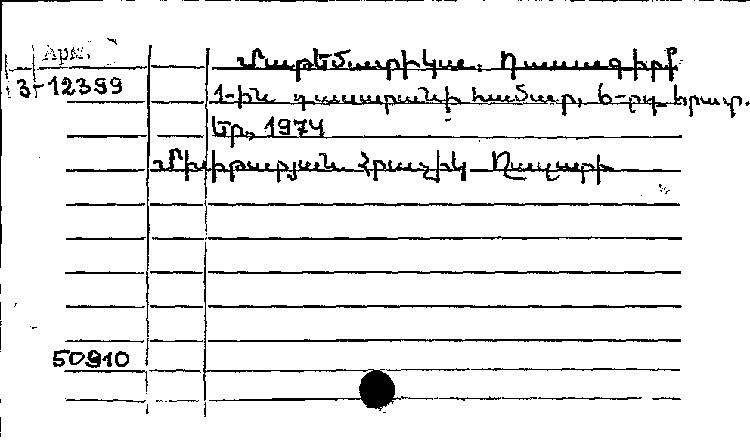 Արմ.
3-12399
Մաթեմատիկա. Դասագիրք
1-ին դասարանի համար, 6-րդ հրատ.
Եր., 1974
Մխիթարյան Հրաչիկ Ղազարի
50910